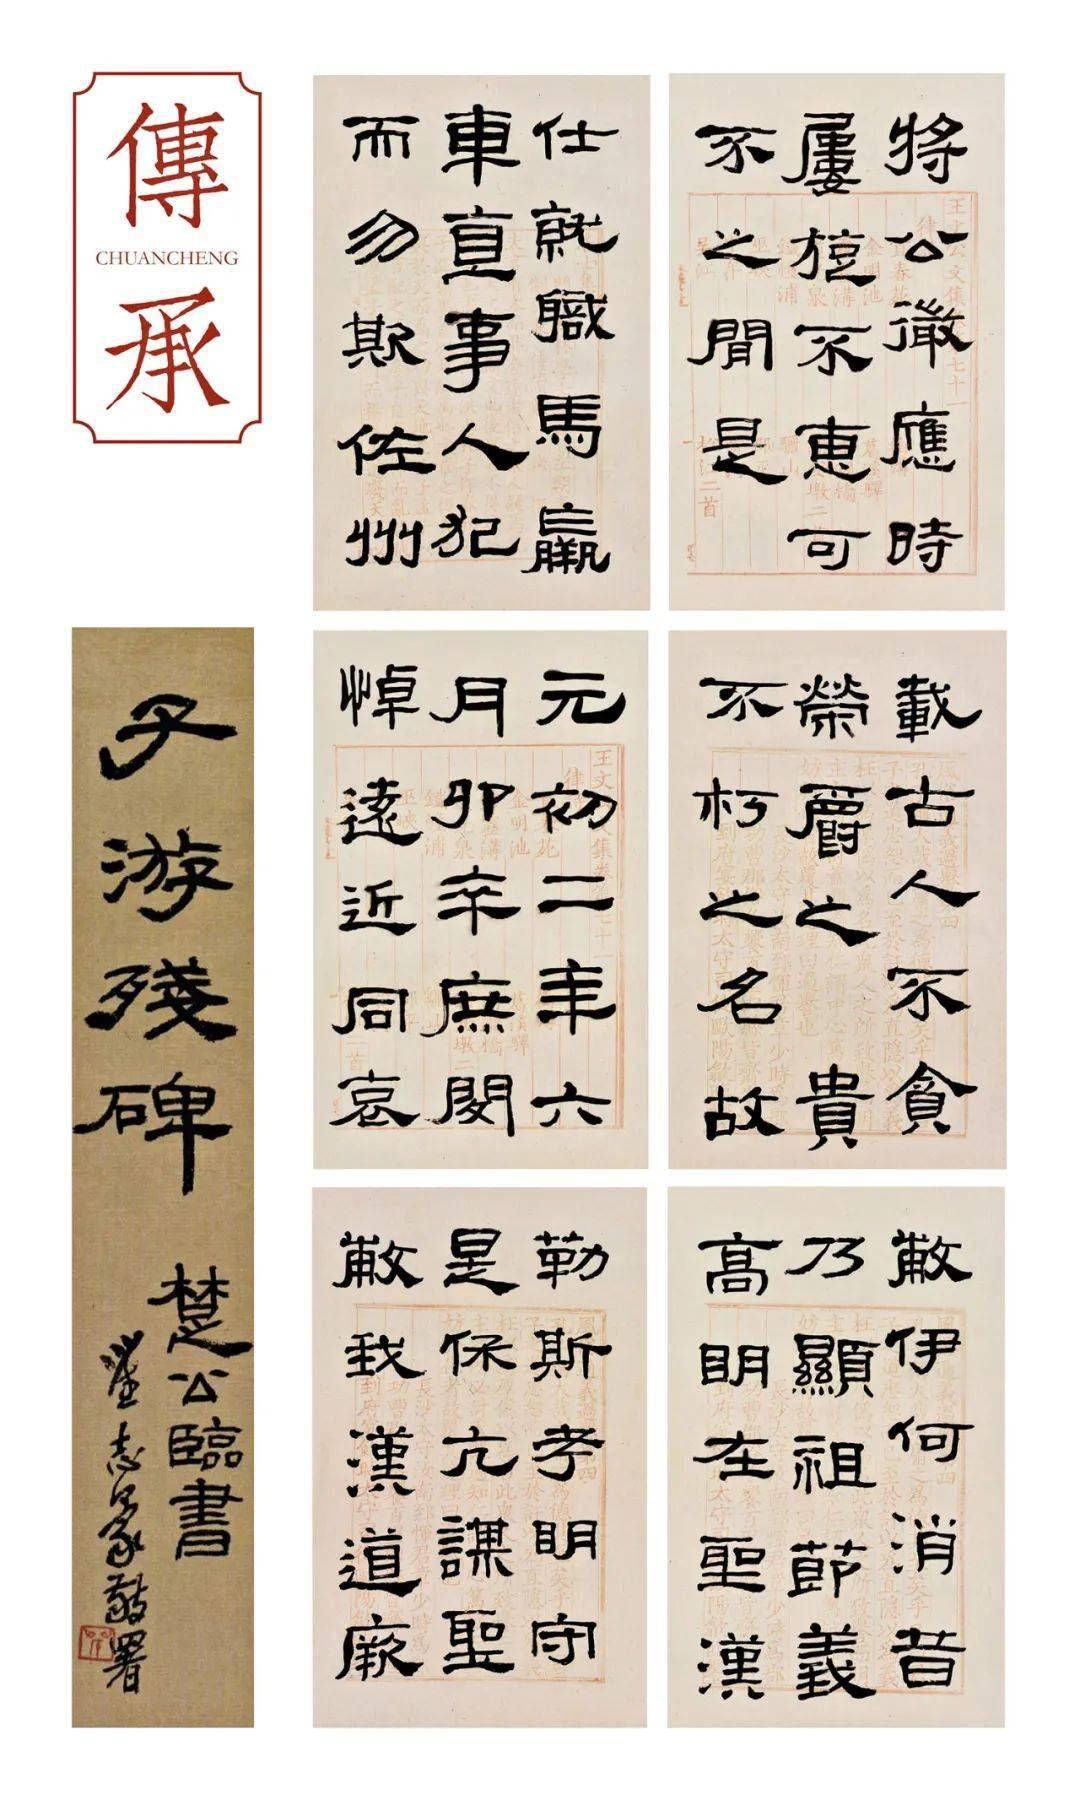 傳
CHUANCHENG
承
子游殘碑
楚公臨書
志豪敬署
將公徵應時
屢不惠可
不之閒是
仕就職馬羸
車直事人犯
而勿欺佐州
載古人不貪
榮爵之貴
不朽之名故
元初二年六
月卯卒庶閔
悼遠近同哀
伊何消昔
乃顯祖節義
高明在聖漢
勒斯孝明守
是保亢謀聖
我漢道厥